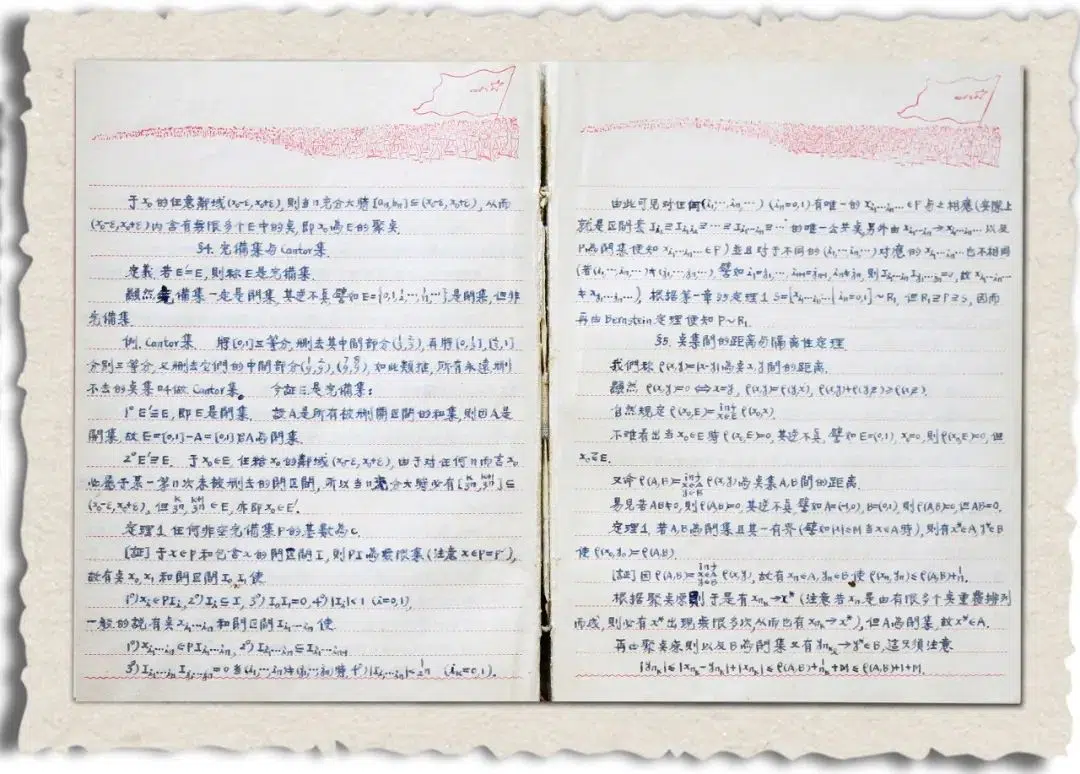 于 x₀ 的任意鄰域 (x₀-ε, x₀+ε), 則当 n 充分大時 [aₙ,bₙ] ⊆ (x₀-ε, x₀+ε), 从而
(x₀-ε, x₀+ε) 内含有無限多个 E 中的点, 即 x₀ 為 E 的聚点
§4. 完備集与 Cantor 集
定義 若 E'=E, 則称 E 是完備集.
顯然完備集一定是閉集, 其逆不真 譬如 E={0,1,½,…,1/n,…} 是閉集, 但非
完備集
例. Cantor 集 將 [0,1] 三等分, 刪去其中間部分 (⅓,⅔), 再將 [0,⅓], [⅔,1]
分別三等分, 又刪去它們的中間部分 (1/9,2/9), (7/9,8/9), 如此類推, 所有永遠刪
不去的点集叫做 Cantor 集. 今証 E 是完備集:
1° E'⊆E, 即 E 是閉集. 故 A 是所有被刪開區間的和集, 則因 A 是
開集, 故 E=[0,1]-A=[0,1]∁A 為閉集
2° E'⊇E. 于 x₀∈E, 任給 x₀ 的鄰域 (x₀-ε, x₀+ε), 由于对任何 n 而言 x₀
必屬于某一第 n 次未被刪去的閉區間, 所以当 n 充分大時必有 [k/3ⁿ, (k+1)/3ⁿ] ⊆
(x₀-ε, x₀+ε), 但 k/3ⁿ, (k+1)/3ⁿ ∈ E, 亦即 x₀∈E'.
定理 1 任何非空完備集 P 的基数為 c.
[証] 于 x∈P 和包含 x 的開區間 I, 則 PI 為無限集 (注意 x∈P=P'),
故有点 x₀, x₁ 和開區間 I₀, I₁ 使
1°) xᵢ∈PIᵢ, 2°) Iᵢ⊆I, 3°) I₀I₁=0, 4°) |Iᵢ|<1 (i=0,1),
一般的說有点 x_{i₁…iₙ} 和開區間 I_{i₁…iₙ} 使
1°) x_{i₁…iₙ}∈PI_{i₁…iₙ}, 2°) I_{i₁…iₙ}⊆I_{i₁…iₙ₋₁}
3°) I_{i₁…iₙ} I_{j₁…jₙ}=0 当 (i₁,…,iₙ)≠(j₁,…,jₙ) 時 4°) |I_{i₁…iₙ}|<1/2ⁿ (iₖ=0,1).
由此可見对任何 (i₁,…,iₙ,…) (iₙ=0,1) 有唯一的 x_{i₁…iₙ…}∈P 与之相應 (实際上
就是區間套 I_{i₁}⊇I_{i₁i₂}⊇…⊇I_{i₁…iₙ}⊇… 的唯一公共点 另外由 x_{i₁…iₙ}→x_{i₁…iₙ…} 以及
P 為閉集便知 x_{i₁…iₙ…}∈P) 並且对于不同的 (i₁,…iₙ,…) 对應的 x_{i₁…iₙ…} 也不相同
(若 (i₁,…iₙ,…)≠(j₁,…jₙ,…) 譬如 i₁=j₁,…, iₙ₋₁=jₙ₋₁, iₙ≠jₙ, 則 I_{i₁…iₙ} I_{j₁…jₙ}=0, 故 x_{i₁…iₙ…}
≠x_{j₁…jₙ…}). 根据第一章 §5 定理 1 S=[x_{i₁…iₙ…}|iₙ=0,1]~R₁, 但 R₁⊇P⊇S, 因而
再由 Bernstein 定理便知 P~R₁
§5. 点集間的距离与隔离性定理
我們称 ρ(x,y)=|x-y| 為点 x,y 間的距离.
顯然 ρ(x,y)=0 ⇔ x=y, ρ(x,y)=ρ(y,x), ρ(x,y)+ρ(y,z)≥ρ(x,z).
自然規定 ρ(x₀,E)=inf_{x∈E} ρ(x₀,x).
不难看出当 x₀∈E 時 ρ(x₀,E)=0, 其逆不真, 譬如 E=(0,1), x₀=0, 則 ρ(x₀,E)=0, 但
x₀∉E.
又命 ρ(A,B)=inf_{x∈A, y∈B} ρ(x,y) 為点集 A,B 間的距离.
易見若 AB≠0, 則 ρ(A,B)=0, 其逆不真 譬如 A=(-1,0), B=(0,1), 則 ρ(A,B)=0, 但 AB=0.
定理 1. 若 A,B 為閉集且其一有界 (譬如 |x|≤M 当 x∈A 時), 則有 x*∈A, y*∈B
使 ρ(x₀,y₀)=ρ(A,B).
[証] 因 ρ(A,B)=inf_{x∈A, y∈B} ρ(x,y), 故有 xₙ∈A, yₙ∈B 使 ρ(xₙ,yₙ)≤ρ(A,B)+1/n.
根据聚点原則于是有 x_{nₖ}→x* (注意若 xₙ 是由有限多个点重覆排列
而成, 則必有 x* 出現無限多次, 从而也有 x_{nₖ}→x*), 但 A 為閉集, 故 x*∈A.
再由聚点原則以及 B 為閉集又有 y_{nₖ}→y*∈B, 這只須注意
|y_{nₖ}|≤|x_{nₖ}-y_{nₖ}|+|x_{nₖ}|≤ρ(A,B)+1/nₖ+M≤ρ(A,B)+1+M.